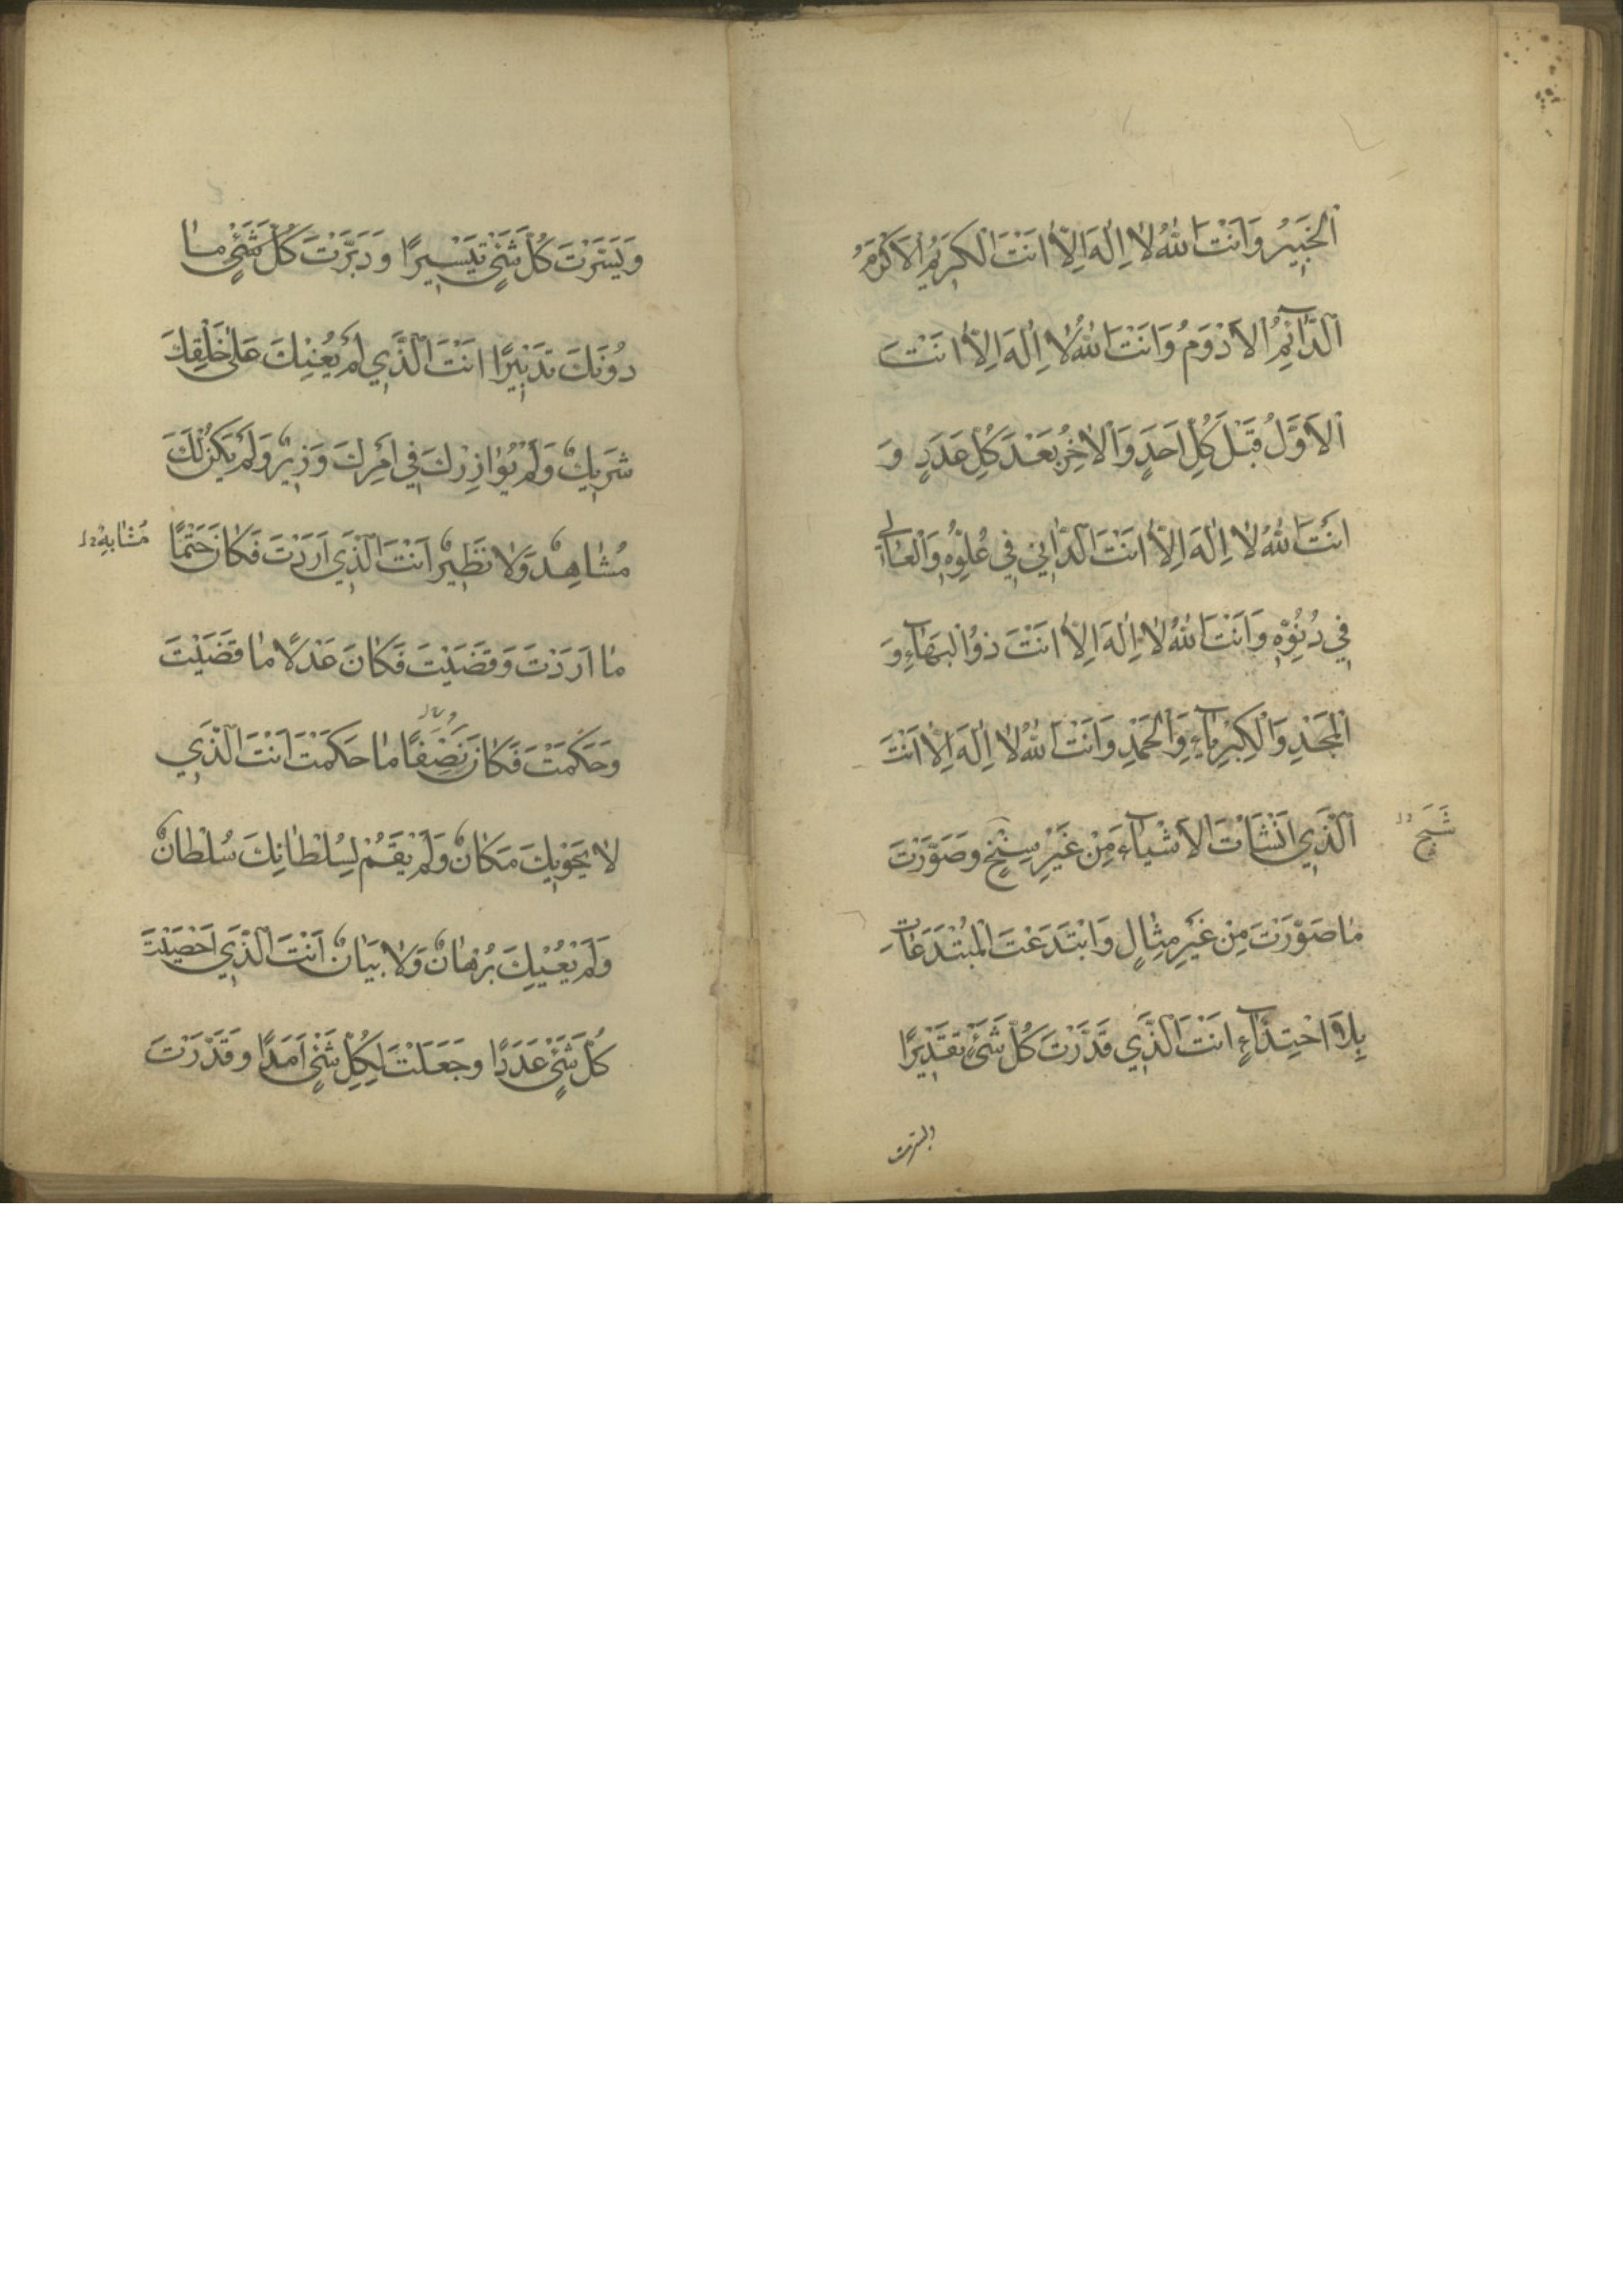 اَلْخَبِيرُ وَاَنْتَ اللهُ لَا اِلٰهَ اِلَّا اَنْتَ الْكَرِيمُ الْاَكْرَمُ
اَلدَّآئِمُ الْاَدْوَمُ وَاَنْتَ اللهُ لَا اِلٰهَ اِلَّا اَنْتَ
الْاَوَّلُ قَبْلَ كُلِّ اَحَدٍ وَالْاٰخِرُ بَعْدَ كُلِّ عَدَدٍ وَ
اَنْتَ اللهُ لَا اِلٰهَ اِلَّا اَنْتَ الدَّانِي فِي عُلُوِّهِ وَالْعَالِي
فِي دُنُوِّهِ وَاَنْتَ اللهُ لَا اِلٰهَ اِلَّا اَنْتَ ذُو الْبَهَآءِ وَ
الْمَجْدِ وَالْكِبْرِيَآءِ وَالْحَمْدِ وَاَنْتَ اللهُ لَا اِلٰهَ اِلَّا اَنْتَ
الَّذِي اَنْشَأْتَ الْاَشْيَآءَ مِنْ غَيْرِ سِنْخٍ وَصَوَّرْتَ
مَا صَوَّرْتَ مِنْ غَيْرِ مِثَالٍ وَابْتَدَعْتَ الْمُبْتَدَعَاتِ
بِلَا احْتِذَآءٍ اَنْتَ الَّذِي قَدَّرْتَ كُلَّ شَيْءٍ تَقْدِيرًا
ويسرت
وَيَسَّرْتَ كُلَّ شَيْءٍ تَيْسِيرًا وَدَبَّرْتَ كُلَّ شَيْءٍ مَا
دُونَكَ تَدْبِيرًا اَنْتَ الَّذِي لَمْ يُعِنْكَ عَلٰى خَلْقِكَ
شَرِيكٌ وَلَمْ يُوَازِرْكَ فِي اَمْرِكَ وَزِيرٌ وَلَمْ يَكُنْ لَكَ
مُشَاهِدٌ وَلَا نَظِيرٌ اَنْتَ الَّذِي اَرَدْتَ فَكَانَ حَتْمًا
مُشَابِهٌ
مَا اَرَدْتَ وَقَضَيْتَ فَكَانَ عَدْلًا مَا قَضَيْتَ
وَحَكَمْتَ فَكَانَ نَصِفًا مَا حَكَمْتَ اَنْتَ الَّذِي
لَا يَحْوِيكَ مَكَانٌ وَلَمْ يَقُمْ لِسُلْطَانِكَ سُلْطَانٌ
وَلَمْ يُعْيِكَ بُرْهَانٌ وَلَا بَيَانٌ اَنْتَ الَّذِي اَحْصَيْتَ
كُلَّ شَيْءٍ عَدَدًا وَجَعَلْتَ لِكُلِّ شَيْءٍ اَمَدًا وَقَدَّرْتَ